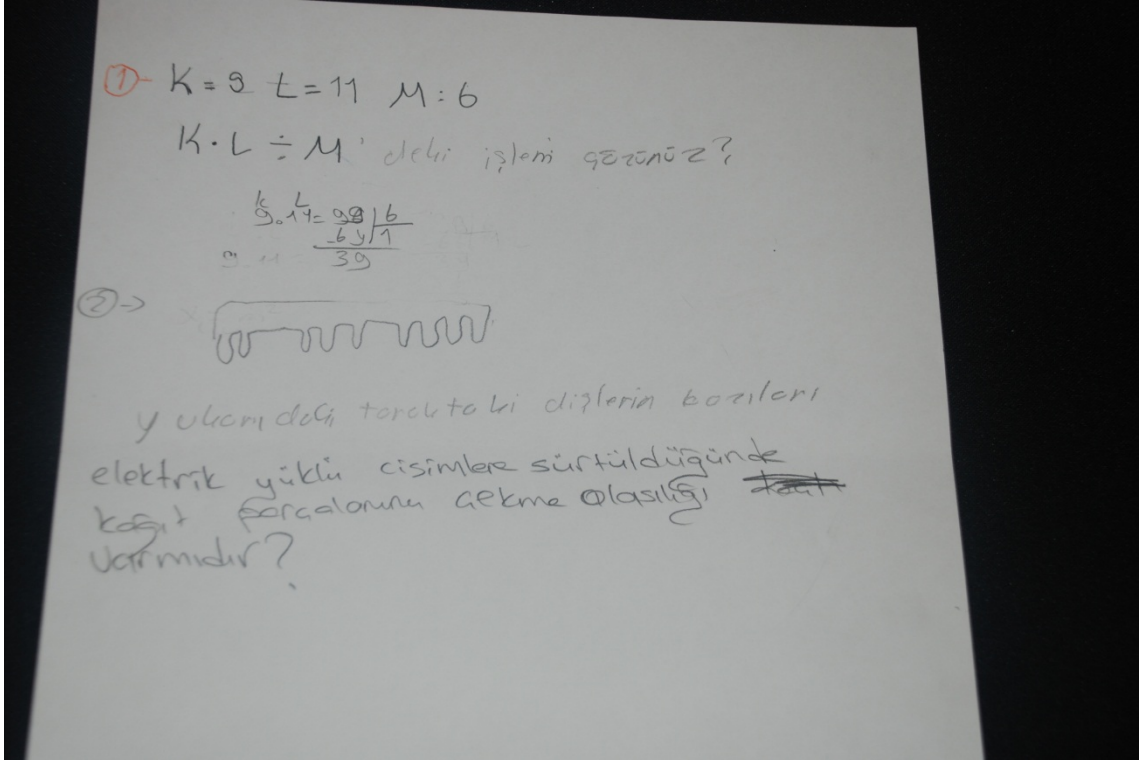 ①- K = 9 L = 11 M : 6
K · L ÷ M ' deki işlemi çözünüz?
K L
9.11= 99 | 6
-6 | 1
39
②->
yukarıdaki taraktaki dişlerin bazıları
elektrik yüklü cisimlere sürtüldüğünde
kağıt parçalarını çekme olasılığı
varmıdır?